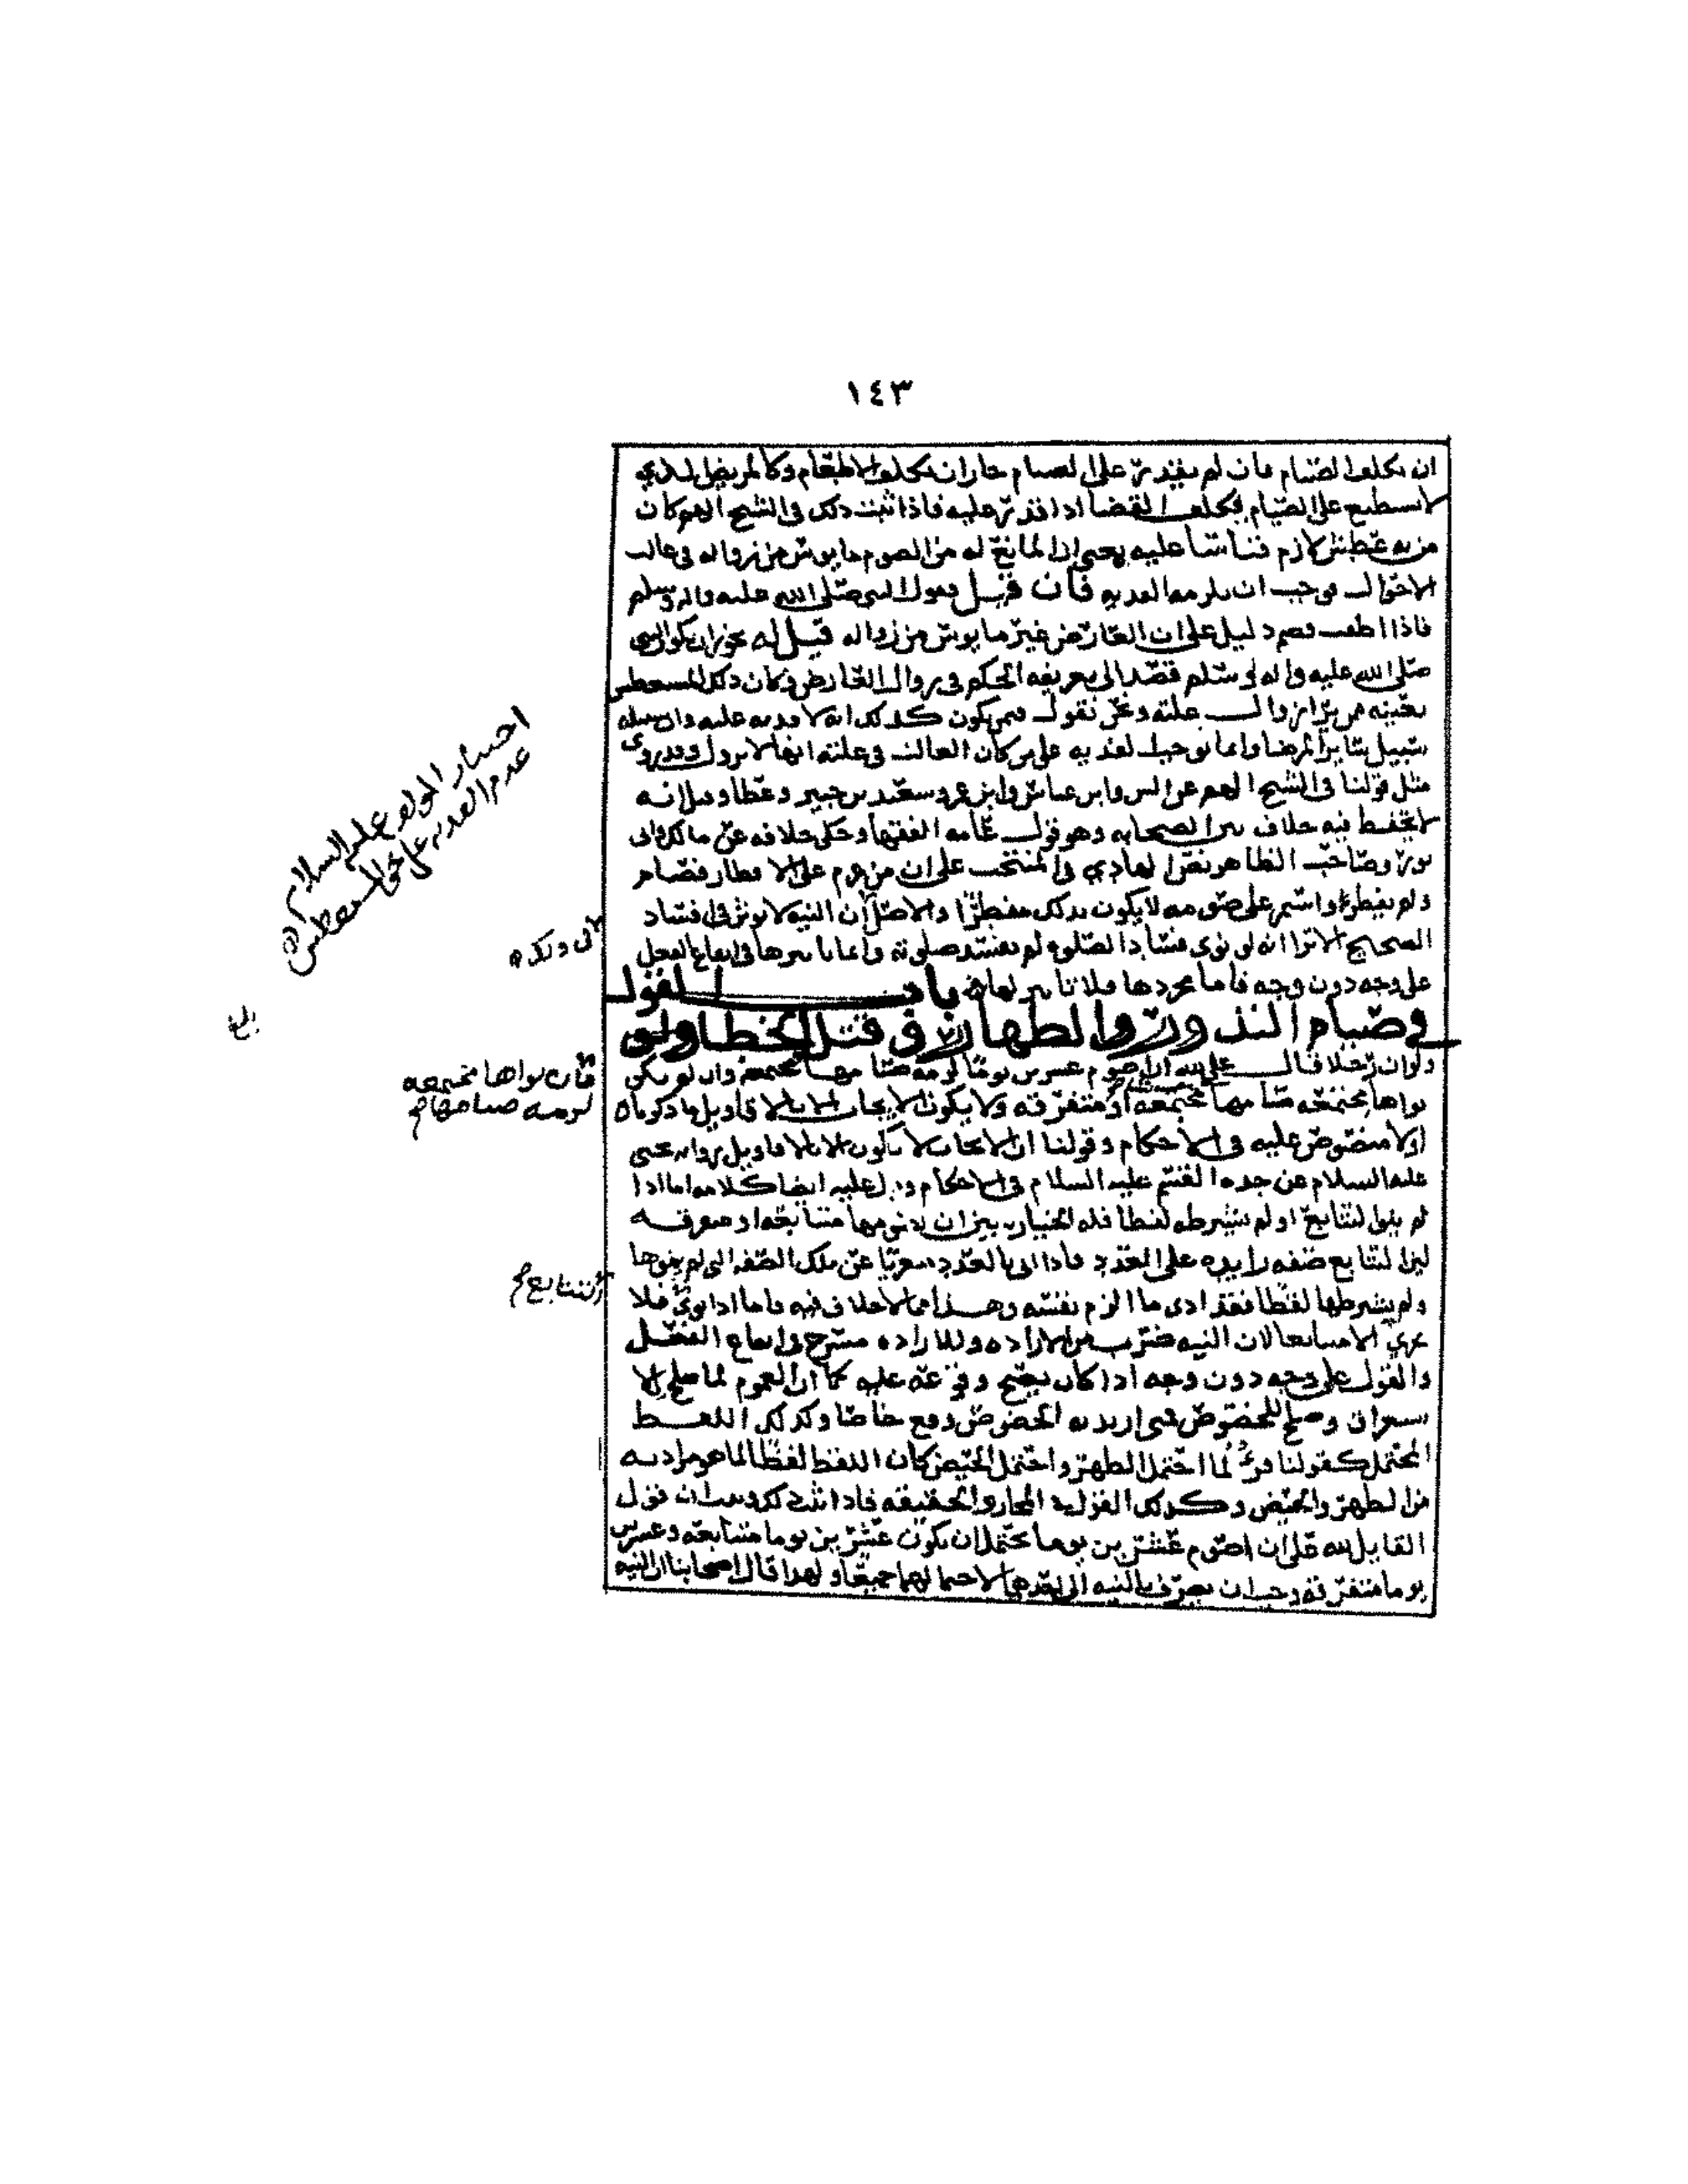 ١٤٣
ان يكلف الصيام فان لم يقدر على الصيام جاز ان يكلف الاطعام وكالمريض الذي
لا يستطيع على الصيام فيكلف القضا اذا قدر عليه فاذا ثبت ذلك في الشيخ الهم كان
من به عطش لازم قياسا عليه بمعنى ان المانع له من الصوم مايوس من زواله في غالب
الاحوال فوجب ان يلزمه الفديه فان قيل فقول النبي صلى الله عليه واله وسلم
فاذا اطقت فصم دليل على ان العارض غير مايوس من زواله قيل له يجوز ان يكون النبي
صلى الله عليه واله وسلم قصد الى تعريفه الحكم في زوال العارض وكان ذلك المستعطش
بعينه من زوال علته ونحن نقول فيمن يكون كذلك انه لا فديه عليه وان سبيله
سبيل سائر المرضا وانما نوجب الفديه على من كان الغالب في علته انها لا تزول وقد روي
مثل قولنا في الشيخ الهم عن انس وابن عباس وابن عمر وسعيد بن جبير وعطا وقيل انه
لا يحفظ فيه خلاف بين الصحابه وهو قول عامه الفقها وحكي خلافه عن مالك وابي
ثور وصاحب الظاهر نص الهادي في المنتخب على ان من عزم على الافطار فصام
ولم يفطر واستمر على صومه لا يكون بذلك مفطرا والاصل ان النيه لا توثر في فساد
الصحيح الا ترا انه لو نوى فساد الصلوه لم تفسد صلوته وانما تاثيرها في ايقاع الفعل
على وجه دون وجه فاما مجردها فلا تاثير لها في باب القول
في صيام النذور والظهار وفي قتل الخطا ولو
ولو ان رجلا قال علي لله ان اصوم عشرين يوما لزمه صيامها مجتمعه وان لم يكن
نواها مجتمعه صامها مجتمعه او متفرقه ولا يكون الايجاب الا بالاقاويل ما ذكرناه
اولا منصوص عليه في الاحكام وقولنا ان الايجاب لا يكون الا بالاقاويل رواه يحيى
عليه السلام عن جده القسم عليه السلام في الاحكام ودل عليه ايضا كلامه اما اذا
لم ينو التتابع او لم يشترطه لفظا فله الخيار بين ان يصومها متتابعه او متفرقه
لان التتابع صفه زايده على العدد فاذا اتى بالعدد متعريا عن تلك الصفه التي لم ينوها
ولم يشترطها لفظا فقد ادى ما الزم نفسه وهذا مما لا خلاف فيه فاما اذا نوى فلا
يجزي الا متتابعا لان النيه ضرب من الاراده وللاراده مسرح في ايقاع الفعل
والقول على وجه دون وجه اذا كان يصح وقوعه عليه كما ان العموم لما صلح للا
ستغراق وصلح للخصوص فمتى اريد به الخصوص وقع خاصا وكذلك اللفظ
المحتمل كقولنا قرء لما احتمل الطهر واحتمل الحيض كان اللفظ لفظا لما هو مراد به
من الطهر والحيض وكذلك القول في المجاز والحقيقه فاذا ثبت ذلك وثبت ان قول
القايل لله علي ان اصوم عشرين يوما يحتمل ان يكون عشرين يوما متتابعه وعشرين
يوما متفرقه وجب ان يصرف بالنيه الى احدهما لاحتمالهما جميعا ولهذا قال اصحابنا ان النيه
اختيار المولف عليه السلام
عدم الفديه على المستعطش
فان نواها مجتمعه
لزمه صيامها
التتابع